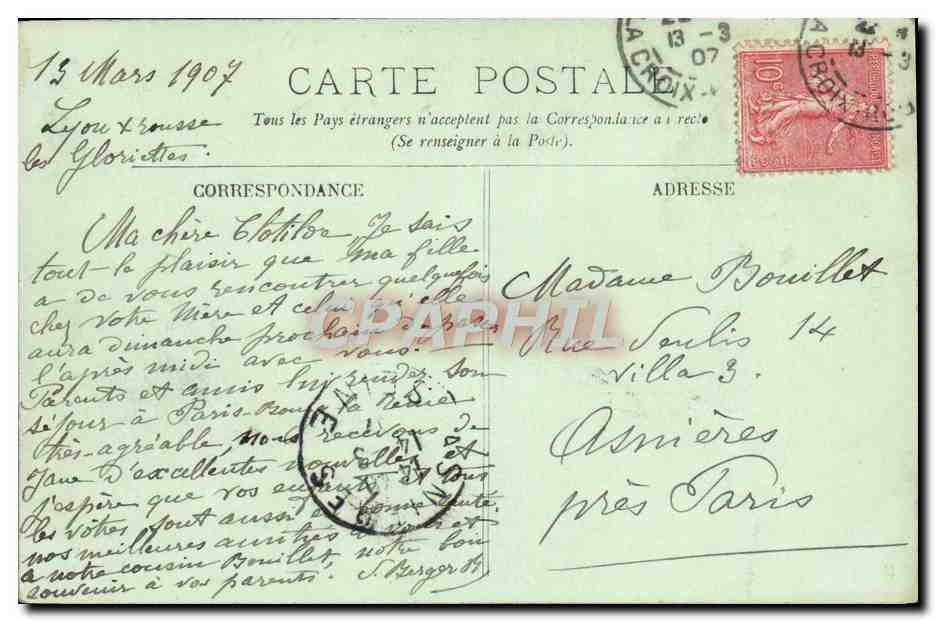 13 Mars 1907
Lyon + rousse
les Gloriettes.
CARTE POSTALE
Tous les Pays étrangers n'acceptent pas la Correspondance au recto
(Se renseigner à la Poste).
CORRESPONDANCE
ADRESSE
Ma chère Clotilde Je sais
tout le plaisir que ma fille
a de vous rencontrer quelquefois
chez votre Mère et celui qu'elle
aura dimanche prochain de passer
l'après midi avec vous.
Parents et amis lui rendez son
séjour à Paris
très-agréable, nous recevons de
Jane D'excellentes nouvelles et
j'espère que vos enfants et tous
les vôtres sont aussi en bonne santé.
nos meilleures amitiés à vous et
à notre cousin Bouillet, notre bon
souvenir à vos parents. S. Berger
Madame Bouillet
Rue Senlis 14
Villa 3.
Asnières
près Paris
13 -3
07
LA CROIX-
13 -3
LA CROIX-
10
POSTE
ASNIERES
SEINE
CPAPHIL